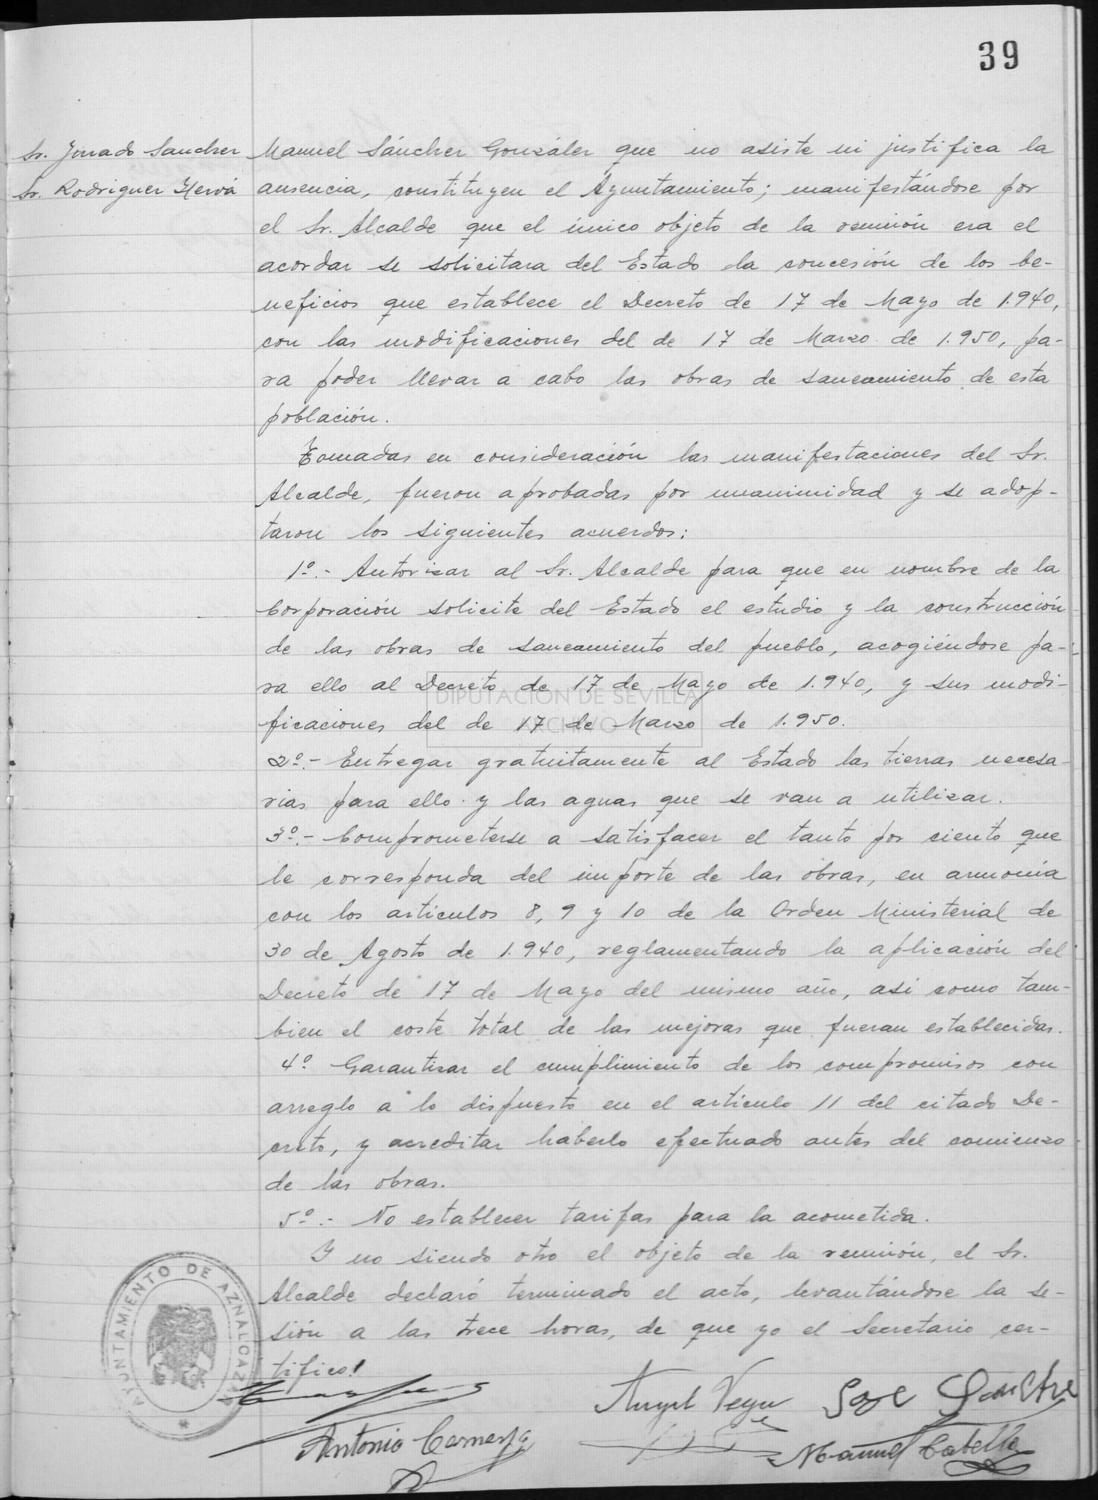 39
Sr. Jurado Sanchez
Sr. Rodriguez Hervá
Manuel Sánchez González que no asiste ni justifica la
ausencia, constituyen el Ayuntamiento; manifestándose por
el Sr. Alcalde que el único objeto de la reunión era el
acordar se solicitara del Estado la concesión de los be-
neficios que establece el Decreto de 17 de Mayo de 1.940,
con las modificaciones del de 17 de Marzo de 1.950, pa-
ra poder llevar a cabo las obras de saneamiento de esta
población.
Tomadas en consideración las manifestaciones del Sr.
Alcalde, fueron aprobadas por unanimidad y se adop-
taron los siguientes acuerdos:
1º.- Autorizar al Sr. Alcalde para que en nombre de la
Corporación solicite del Estado el estudio y la construcción
de las obras de saneamiento del pueblo, acogiéndose pa-
ra ello al Decreto de 17 de Mayo de 1.940, y sus modi-
ficaciones del de 17 de Marzo de 1.950.
DIPUTACION DE SEVILLA
ARCHIVO
2º.- Entregar gratuitamente al Estado las tierras necesa-
rias para ello y las aguas que se van a utilizar.
3º.- Comprometerse a satisfacer el tanto por ciento que
le corresponda del importe de las obras, en armonía
con los artículos 8, 9 y 10 de la Orden Ministerial de
30 de Agosto de 1.940, reglamentando la aplicación del
Decreto de 17 de Mayo del mismo año, asi como tam-
bien el coste total de las mejoras que fueran establecidas.
4º Garantizar el cumplimiento de los compromisos con
arreglo a lo dispuesto en el artículo 11 del citado De-
creto, y acreditar haberlo efectuado antes del comienzo
de las obras.
5º.- No establecer tarifas para la acometida.
Y no siendo otro el objeto de la reunión, el Sr.
Alcalde declaró terminado el acto, levantándose la se-
sión a las trece horas, de que yo el Secretario cer-
tifico!
AYUNTAMIENTO DE AZNALCAZAR
Angel Vega
Jose
Antonio
Manuel Cabello